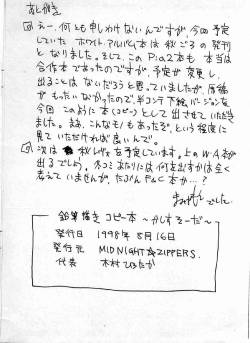 あとがき
えー、何とも申しわけないんですが、今回予定
していた ホワイトアルバム本は 秋ごろの発刊
となりました。そして、このPia2本も 本当は
合作本であったのですが、予定が変更し、
出ることは ないだろうと思っていましたが、原稿
がもったいなかったので、半コンテ下絵バージョンを
今回 このように本(コピー)として出させていただき
ました。まあ、こんなモノもあったぞ。という程度に
見ていただければ良いんで。
次は 秋レヴォを予定しています。上のW・A本が
出るでしょう。冬コミあたりには何を出すかは全く
考えていませんが、たぶんPia本か…?
でした。
鉛筆描き コピー本 〜かしすそーだ〜
発行日 1998年 8月16日
発行元 MIDNIGHT☆ZIPPERS.
代表 木村ひろたか